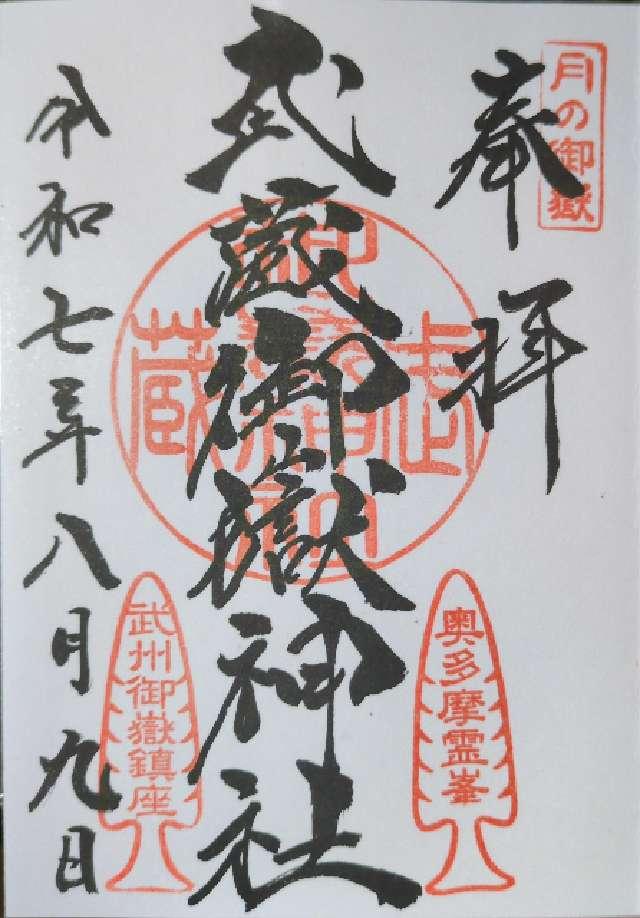 月の御嶽
奉拝
武蔵御嶽神社
令和七年八月九日
奥多摩霊峯
武州御嶽鎮座